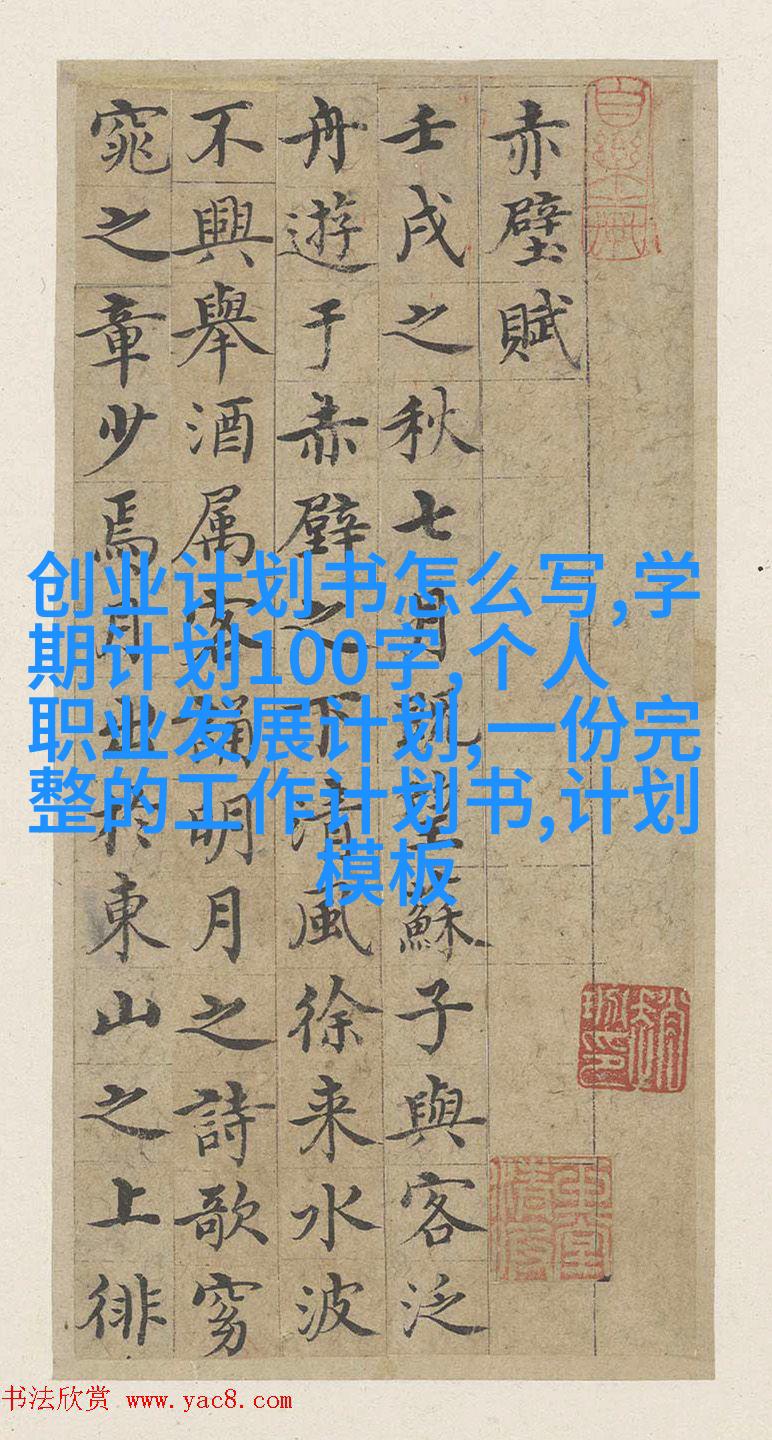 赤壁賦
壬戌之秋七月既望蘇子與客泛
舟遊于赤壁之下清風徐来水波
不興舉酒属客誦明月之詩歌窈
窕之章少焉月出於東山之上徘
创业计划书怎么写,学
期计划100字,个人
职业发展计划,一份完
整的工作计划书,计划
模板
书法欣赏 www.yac8.com